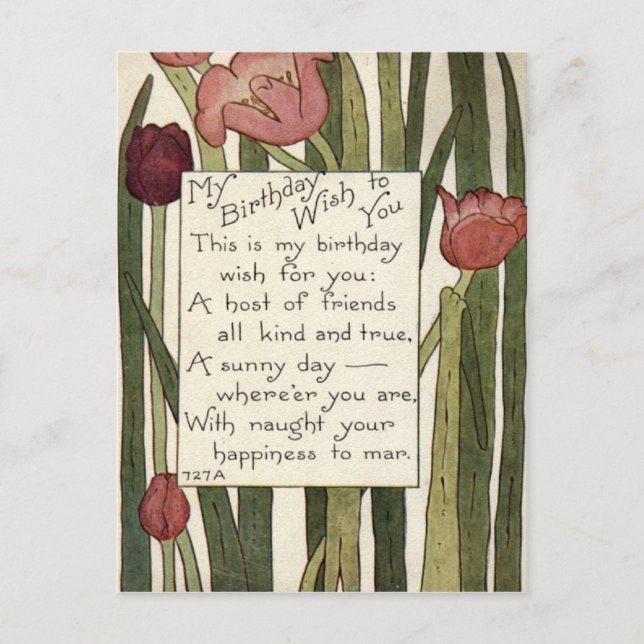 My Birthday Wish to You
This is my birthday
wish for you:
A host of friends
all kind and true,
A sunny day —
where'er you are,
With naught your
happiness to mar.
727A